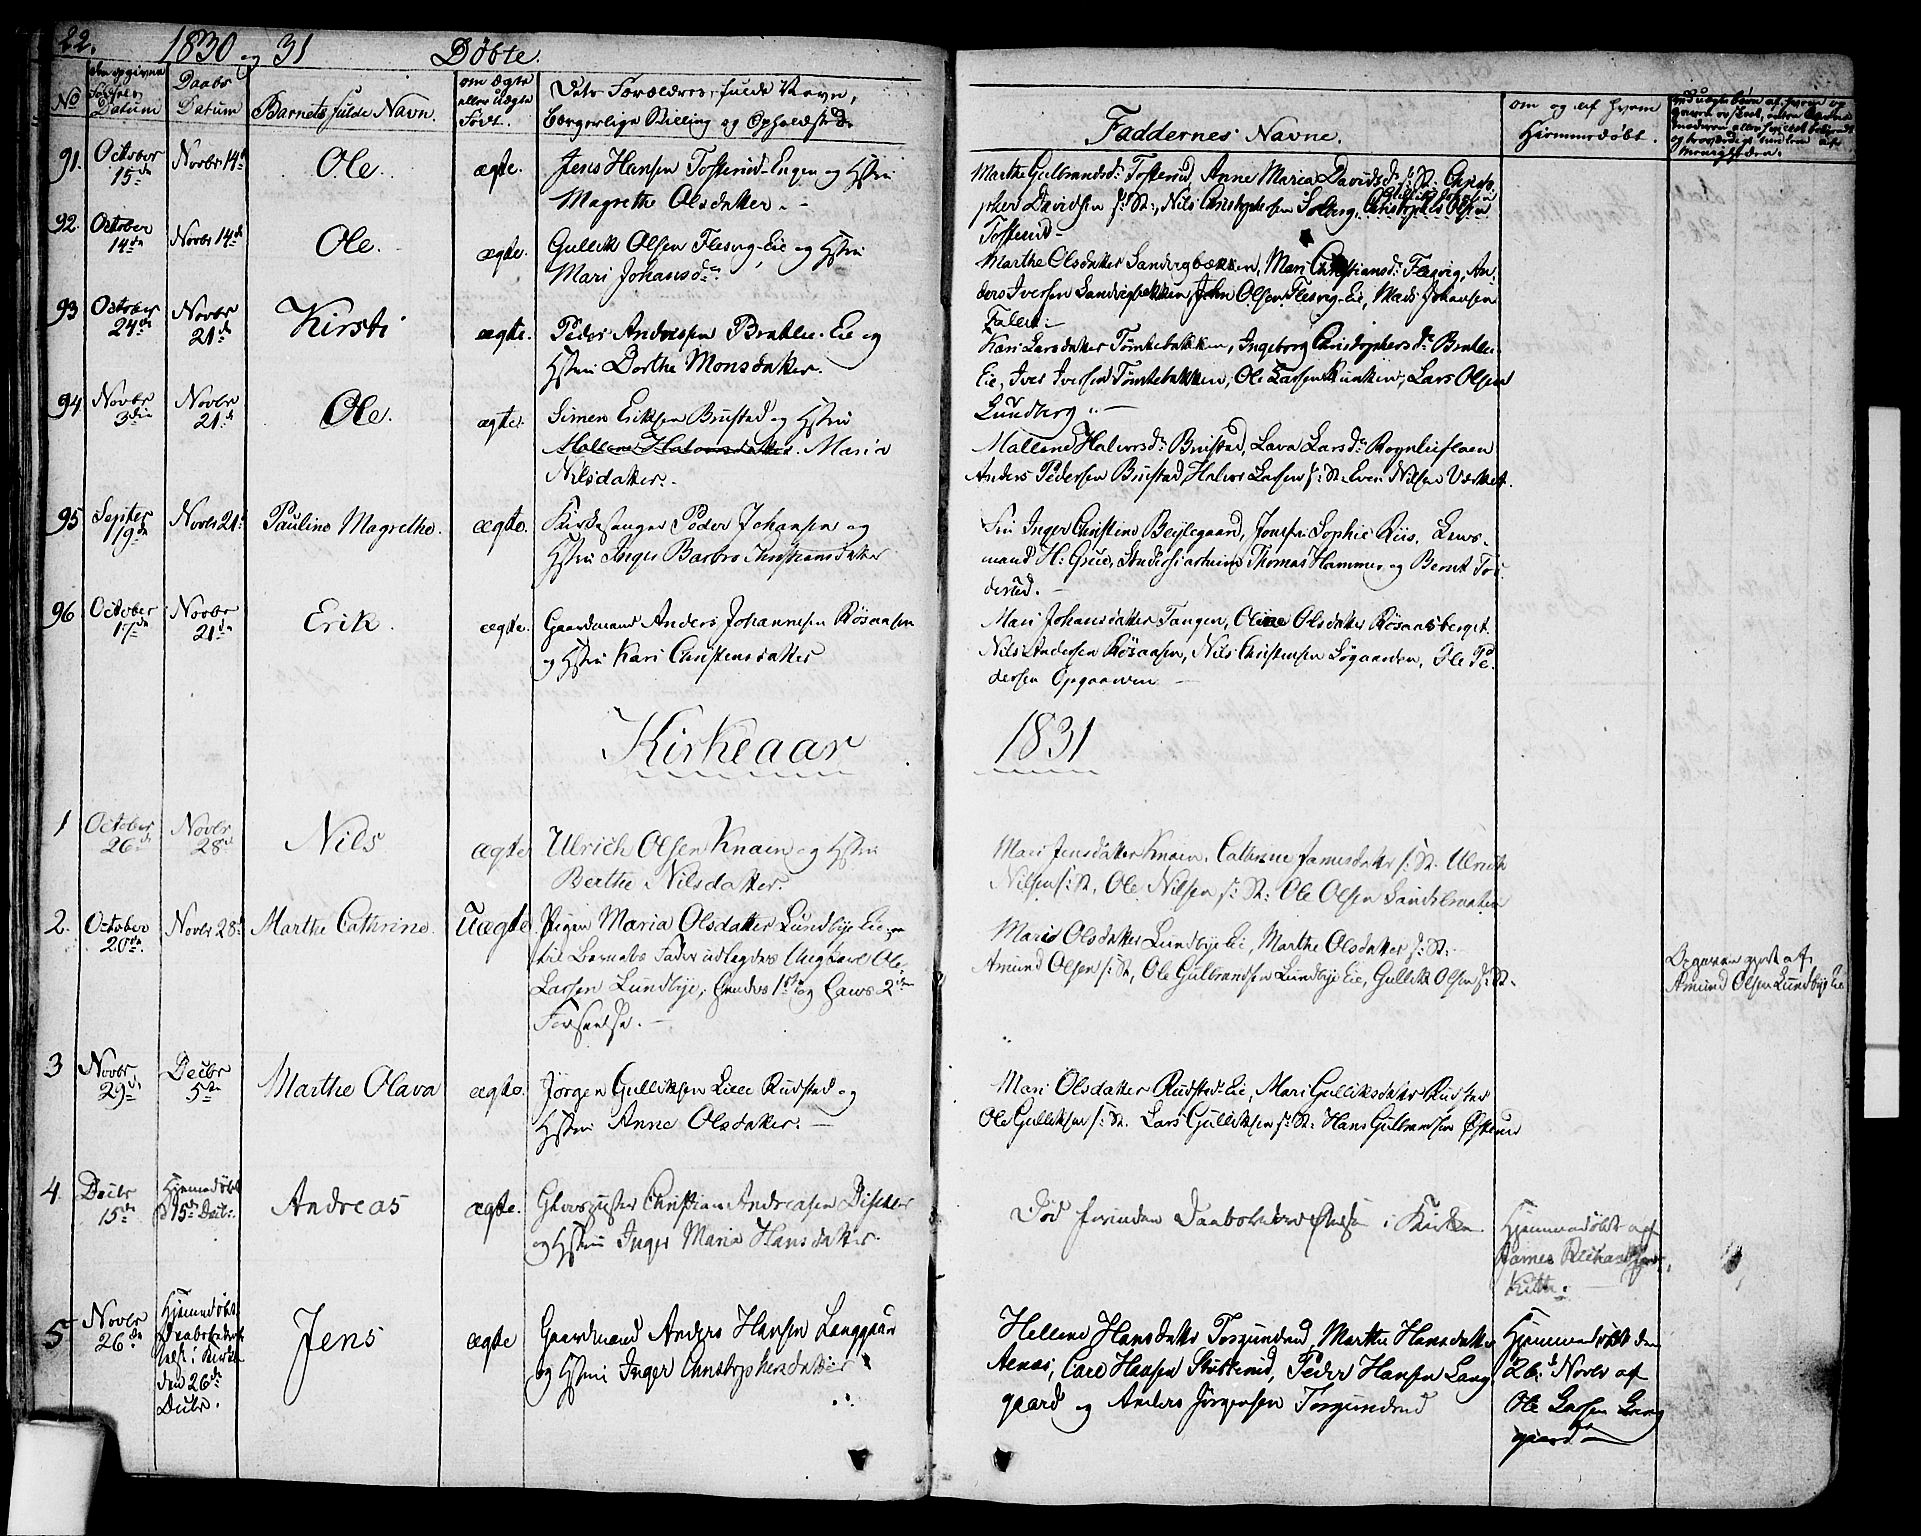 22.
1830 og 31
Døbte.
No
Datum
Daabs Datum
Barnets fulde Navn.
om ægte eller uægte Født.
Dets Forældres fulde Navn,
borgerlige Stilling og Opholdssted
Faddernes Navne.
om og af hvem
Hjemmedøbt.
91. October 15de Novbr 14d Ole. ægte. Jens Hansen Tosterud-Engen og Hstru
Magrethe Olsdatter.
Marthe Gulbrandsd: Tosterud, Anne Maria Davidsd: s: St: Christo
pher Davidsen s: St:, Nils Christophersen Solberg, Christopher Olsen
Tosterud
92. October 14de Novbr 14de Ole. ægte. Gullik Olsen Flesvig-Eie og Hstru
Mari Johansd:
Marthe Olsdatter Sandvigbækken, Mari Christiansd: Flesvig, An-
ders Iversen Sandvigbækken, John Olsen Flesvig-Eie, Mads Johansen
Falen
93 October 24de Novbr 21de Kirsti ægte. Peder Andersen Brahlie-Eie og
Hstru Dorthe Monsdatter.
Kari Larsdatter Tømtebakken, Ingeborg Christophersd: Brahlie-
Eie, Iver Iversen Tømtebakken, Ole Larsen Runken, Lars Olsen
Lundberg
94 Novbr 3die Novbr 21d Ole. ægte. Simen Eriksen Brustad og Hstru
Mallene Halvorsdatter. Maria
Nilsdatter.
Mallene Halvorsd: Brustad, Lava Larsd: Rognliefloen
Anders Pedersen Brustad, Halvor Larsen s: St: Even Nilsen Værket.
95 Septbr 19de Novbr 21d Pauline Magrethe. ægte. Kirkesanger Peder Johansen og
Hstru Inger Barbro Christiansdatter
Fru Inger Christine Beylegaard, Jomfru Sophie Riis, Lens-
mand H: Grue, Thomas Hammer og Bernt To
derud.
96 October 17de Novbr 21de Erik. ægte. Gaardmand Anders Johannesen Røsaasen
og Hstru Kari Christensdatter
Mari Johansdatter Tangen, Oline Olsdatter Røsaasberget.
Nils Andersen Røsaasen, Nils Christensen Søgaarden, Ole Pe
dersen Opgaarden
Kirkeaar 1831
1 October 26de Novbr 28de Nils ægte Ulrich Olsen Knain og Hstru
Berthe Nilsdatter.
Mari Jensdatter Knain, Cathrine Jamesdatter s: St. Ulrich
Nilsen s: St, Ole Nilsen s: St: Ole Olsen
2. October 20de Novbr 28d Marthe Cathrine. Uægte. Pigen Maria Olsdatter Lundbye Eie,
til Barnets Fader udlægdes Ungkarl Ole
Larsen Lundbye, hendes 1ste og hans 2den
Forseelse.
Maria Olsdatter Lundbye Eie, Marthe Olsdatter s: St:
Amund Olsen s: St, Ole Gulbrandsen Lundbye Eie, Gullik Olsen s: St.
Opgaven gjort af
Amund Olsen Lundbye Eie
3 Novbr 29d Decbr 5te Marthe Olava ægte. Jørgen Gulliksen Lille Rudstad og
Hstru Anne Olsdatter.
Mari Olsdatter Rudstad-Eie, Mari Gulliksdatter
Ole Gulliksen s: St. Lars Gulliksen s: St: Hans Gulbrandsen Østerud
4 Decbr 15de Hjemmedøbt d 15de Decbr. Andreas ægte. Glaspuster Christian Andreasen Discher
og Hstru Inger Maria Hansdatter.
Død forinden Daabs i Kirken
Hjemmedøbt af
James
5 Novbr 26de Hjemmedøbt
i Kirken
den 26de
Decbr.
Jens ægte Gaardmand Anders Hansen Langgaard
og Hstru Inger Christophersdatter
Hellene Hansdatter Torgunderud, Marthe Hansdatter
Aenæs, Care Hansen Slotterud, Peder Hansen Lang
gaard og Anders Jørgensen Torgunderud
Hjemmedøbt den
26de Novbr af
Ole Larsen Lang
gaard